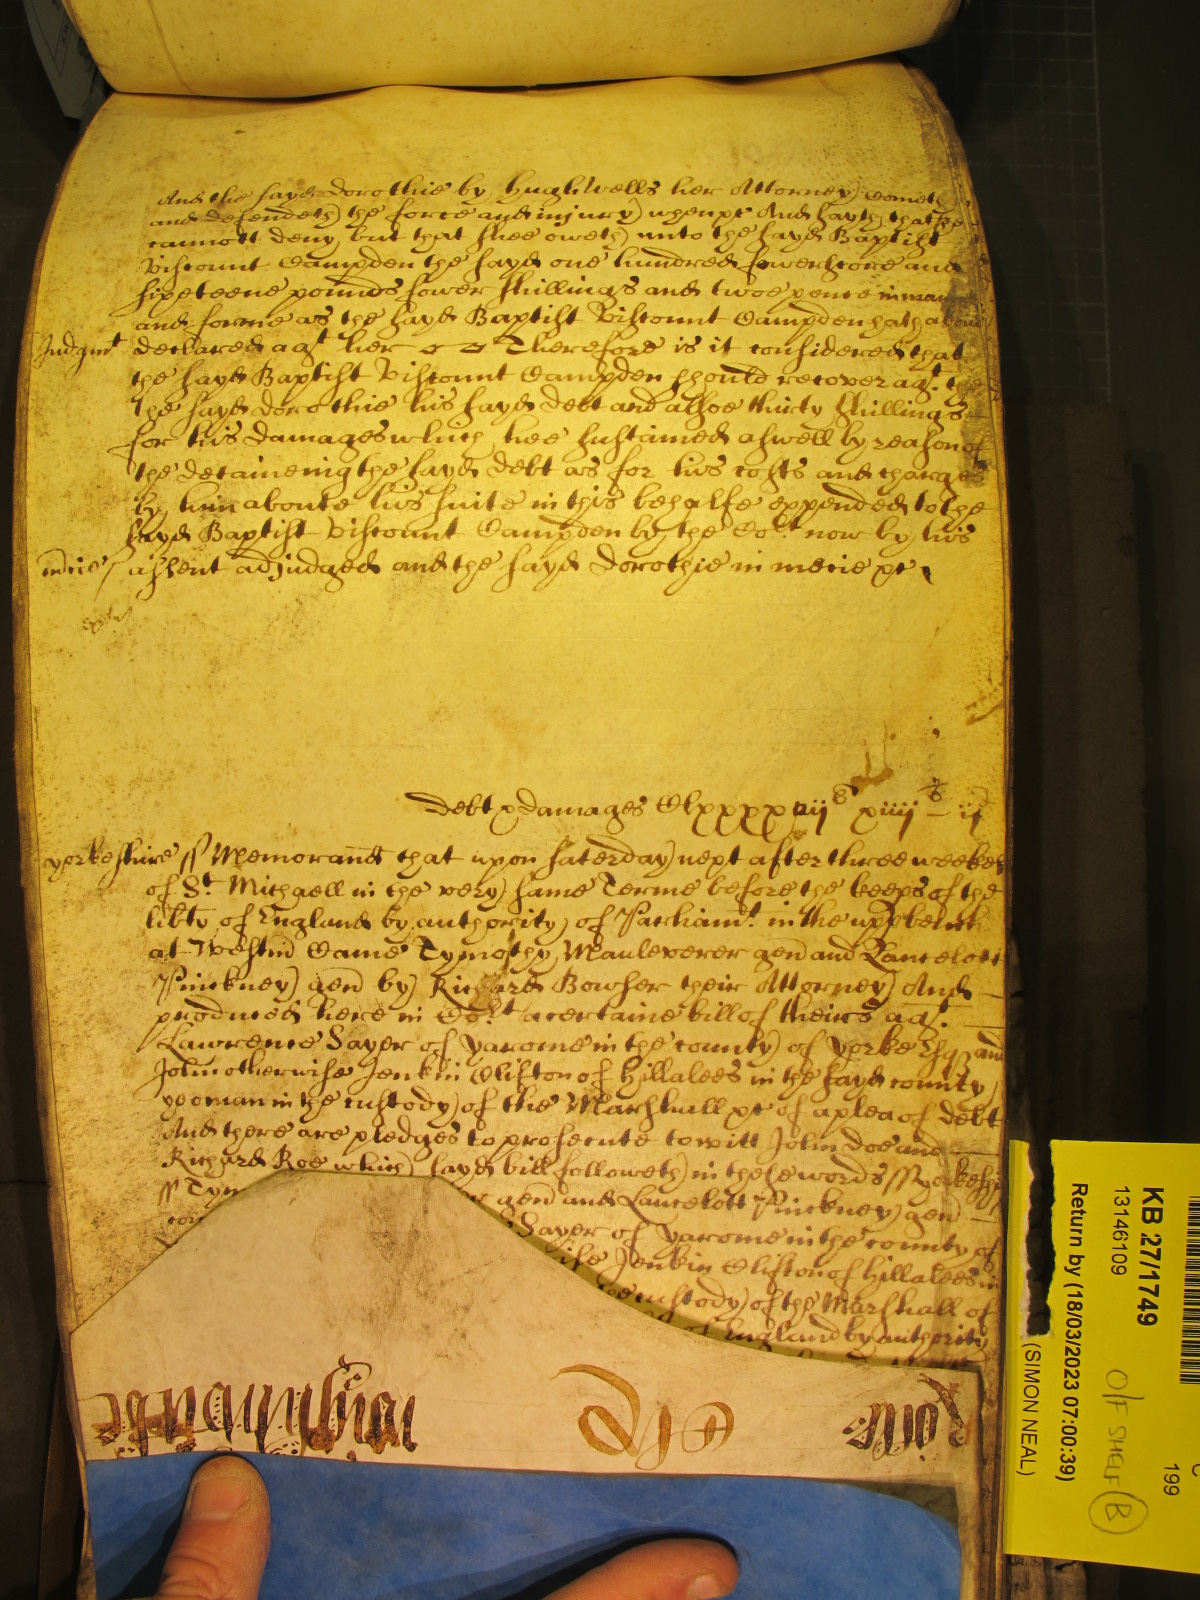 And the sayd Dorothie by Hugh Wells her Attorney Cometh
and defendeth the force and injury when &c And sayth that shee
cannott deny but that shee oweth unto the sayd Baptist
Viscount Campden the sayd one hundred fowerscore and
sixeteene pounds fower shillings and twoe pence in man
and forme as the sayd Baptist Viscount Campden hath above
Judgmt declared agt her Therefore is it considered that
the sayd Baptist Viscount Campden should recover agt. the
the sayd Dorothie his sayd debt and alsoe thirty shillings
for his damages which hee sustained aswell by reason of
the detaineing the sayd debt as for his costs and charges
by him aboute his suite in this behalfe expended to the
sayd Baptist Viscount Campden by the Cort now by his
mercie assent adjudged and the sayd Dorothie in mercie &c
debt & damages Clxxxxvij xiiij ij
yorkeshire ss Memorand that upon Saterday next after three weekes
of St. Michaell in the very same Terme before the keeps of the
libty of England by authority of Parliamt. in the upp bench
at Westm Came Tymothy Mauleverer gen and Lancelott
Pinckney gen by Richard Bowser their Attorney And
produced here in Cort a certaine bill of theirs agt.
Lawrence Sayer of yarome in the county of yorke Esq and
John otherwise Jenkin Clifton of Hillalees in the sayd county
yeoman in the custody of the Marshall &c of a plea of debt
And there are pledges to prosecute towitt John Doe and
Richard Roe which sayd bill followeth in these words ss yorkeshire
ss Tym gen and Lancelott Pinckney gen
Sayer of yarome in the county of
ise Jenkin Clifton of Hillalees in
custody of the Marshall of
of England by authority
Rolls
KB 27/1749
13146109
Return by (18/03/2023 07:00:39)
(SIMON NEAL)
O/F SHELF (B)
C
199